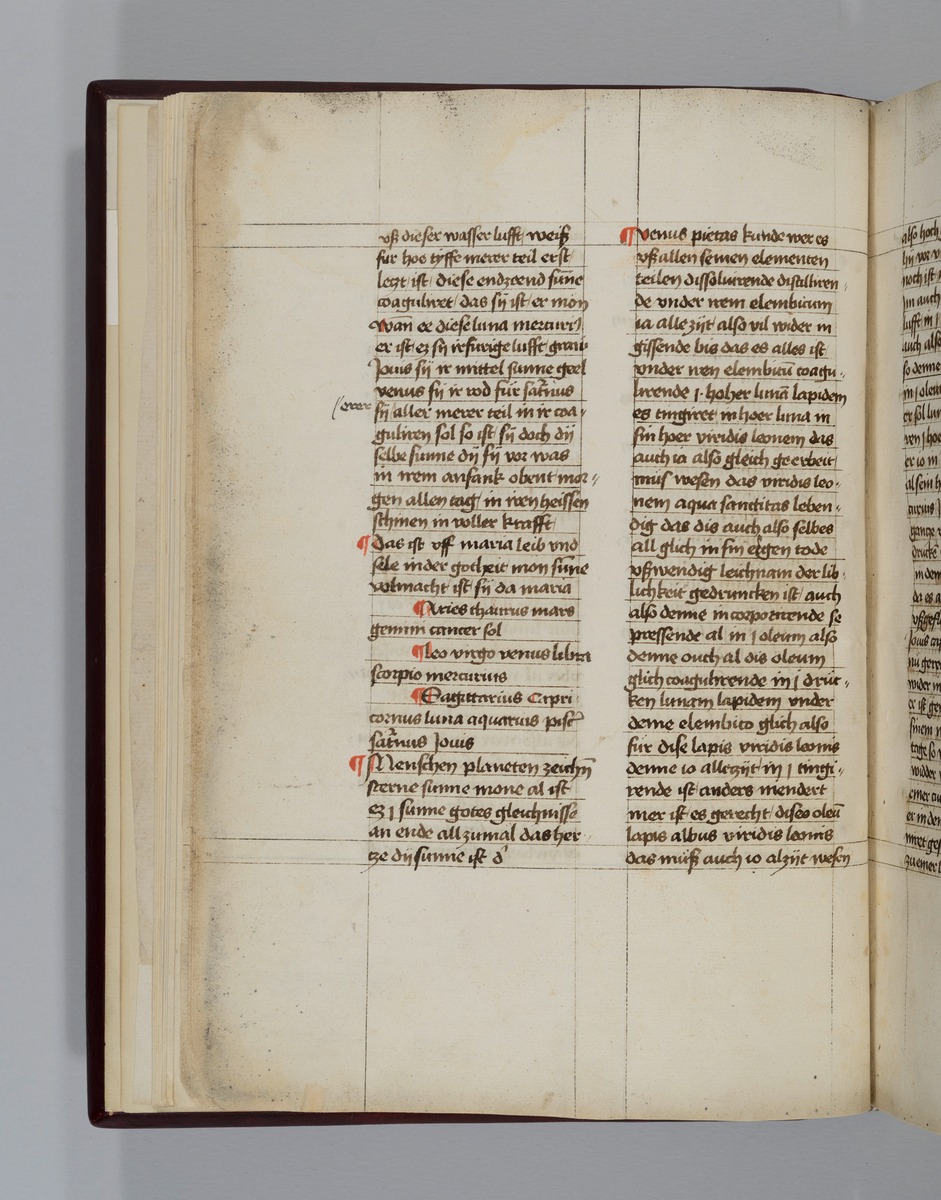 vß dieser wasser lufft weiß
für hoe tyffe merer teil erst
letzt ist diese endzeend sūne
coagulíret das sÿ ist er mon
wan̄ ee diese luna mercurÿ
er ist ez sÿ ir fürige lufft graw
Jouis sÿ ir mittel sunne geel
venus sÿ ir rod für sat̄nus
sÿ aller merer teil in ir coa-
guliren sol so ist sÿ doch dÿ
selbe sunne dÿ sÿ vor was
in irem anfank obent mor-
gen allen tag in iren heissen
schinen in voller krafft
¶ Das ist vff maria leib vnd
sele in der gotheit mon sūne
volmacht ist sÿ da maria
¶ Aries thaurus mars
gemini cancer sol
¶ leo virgo venus libra
scorpio mercurius
¶ Sagittarius Capri
cornus luna aquarius pisc̄
sat̄nus Jouis
¶ Menschen planeten zeichn̄
sterne sunne mone al ist
ez j sunne gotes gleichnisse
an ende allzumal das her-
tze dÿ sunne ist d'
erer
¶ Venus pietas kunde wer es
vß allen seinen elementen
teilen dissoluirende distilliren-
de vnder irem elembicum
ia allezijt also vil wider in
gissende bis das es alles ist
vnder iren elembicū coagu-
lirende j hoher lunā lapidem
es tingiret in hoer luna in
sin hoer viridis leonem das
auch ia also gleich geerbeit
müs wesen das viridis leo-
nem aqua sanctitas leben-
dig das dis auch also selbes
all glich in sin eygen tode
vßwendig leichnam der lib-
lichkeit gedruncken ist auch
also denne incorporerende se
pressende al in j oleum also
denne ouch al dis oleum
glich coagulirende in j drüc-
ken lunam lapidem vnder
deme elembico glich also
für dise lapis viridis leonis
denne io allezijt in j tingi-
rende ist anders mendert
mer ist es gerecht diseo oleū
lapis albus viridis leonis
das müß auch io alzijt wesen